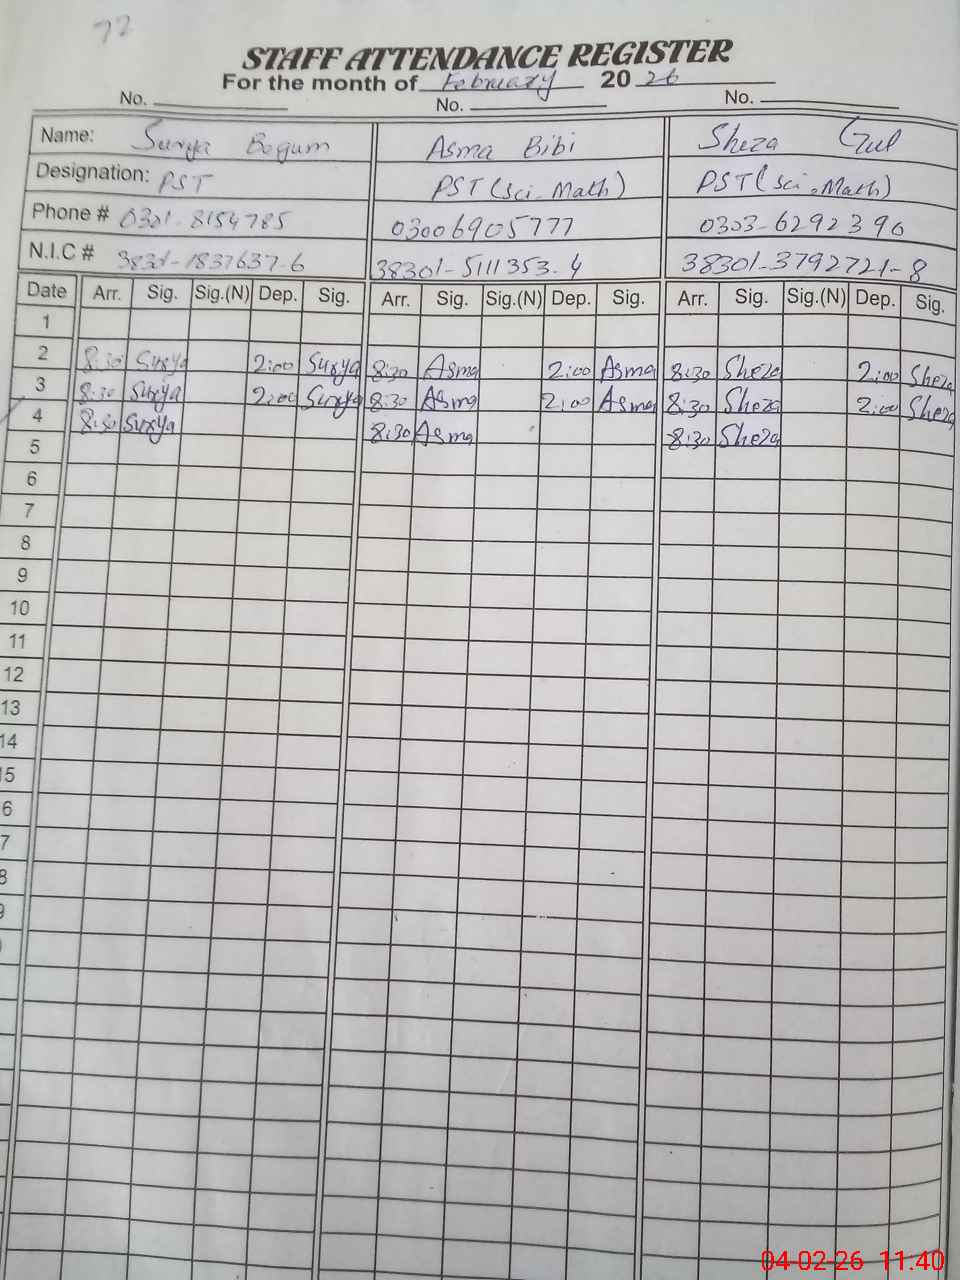 72
STAFF ATTENDANCE REGISTER
For the month of February 2026
No. No. No.
Name: Surya Begum Asma Bibi Sheza Gul
Designation: PST PST (Sci-Math) PST (Sci-Math)
Phone # 0301-8154785 03006905777 0303-6292390
N.I.C # 38301-1837637-6 38301-5111353-4 38301-3792721-8
Date Arr. Sig. Sig.(N) Dep. Sig. Arr. Sig. Sig.(N) Dep. Sig. Arr. Sig. Sig.(N) Dep. Sig.
1
2 8:30 Surya 2:00 Surya 8:30 Asma 2:00 Asma 8:30 Sheza 2:00 Sheza
3 8:30 Surya 2:00 Surya 8:30 Asma 2:00 Asma 8:30 Sheza 2:00 Sheza
4 8:30 Surya 8:30 Asma 8:30 Sheza
5
6
7
8
9
10
11
12
13
14
15
6
7
8
9
04-02-26 11.40